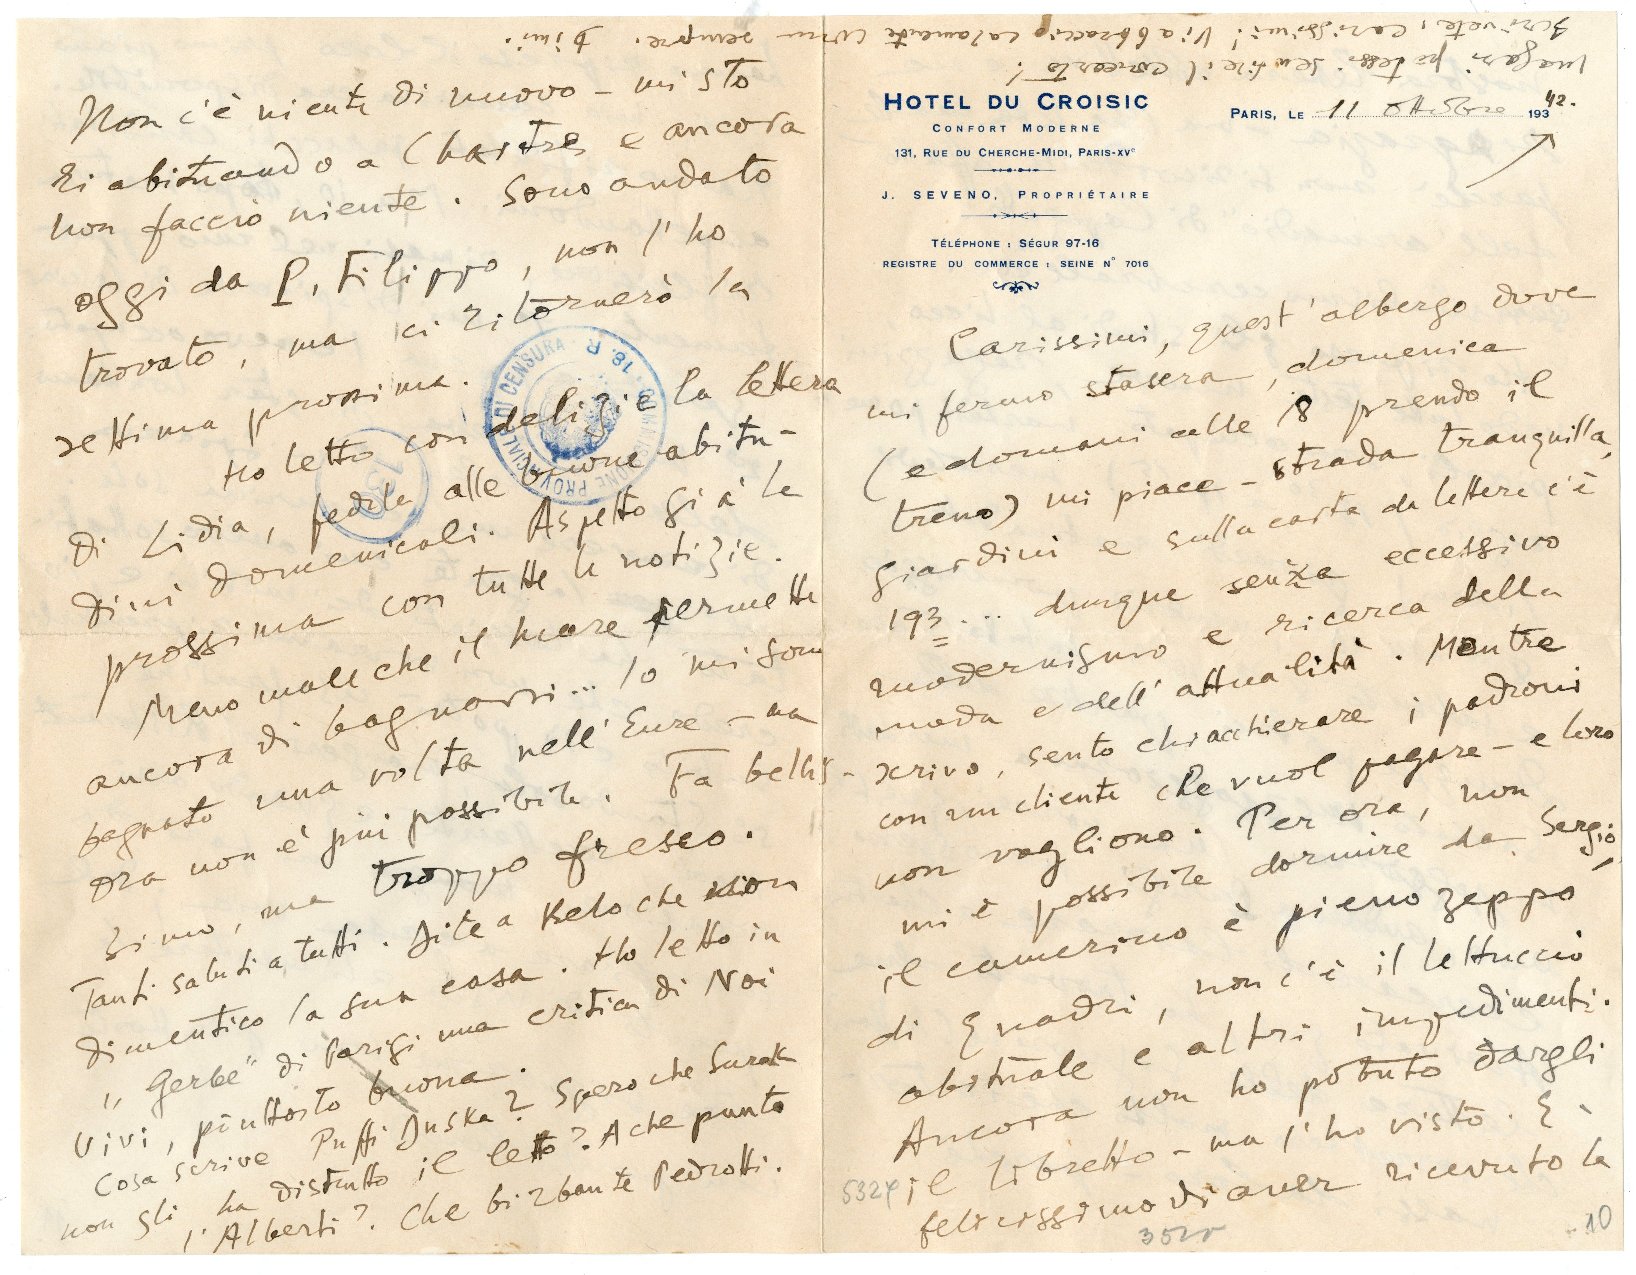 HOTEL DU CROISIC
CONFORT MODERNE
131, RUE DU CHERCHE-MIDI, PARIS-XVe
J. SEVENO, PROPRIÉTAIRE
TÉLÉPHONE : SÉGUR 97-16
REGISTRE DU COMMERCE : SEINE N° 7016
PARIS, LE 11 ottobre 193 42.
Carissimi, quest'albergo dove
mi fermo stasera, domenica
(e domani alle 18 prendo il
treno) mi piace - strada tranquilla,
giardini e sulla carta da lettere c'è
193... dunque senza eccessivo
modernismo e ricerca della
moda e dell'attualità. Mentre
scrivo, sento chiacchierare i padroni
con un cliente che vuol pagare - e loro
non vogliono. Per ora, non
mi è possibile dormire da Sergio,
il camerino è pieno zeppo
di quadri, non c'è il lettuccio
abituale e altri impedimenti.
Ancora non ho potuto dargli
il libretto - ma l'ho visto. È
felicissimo di aver ricevuto la
5324
3525
10
Non c'è niente di nuovo - mi sto
riabituando a Chartres e ancora
non faccio niente. Sono andato
oggi da P. Filippo, non l'ho
trovato, ma ci ritornerò la
settima prossima.
Ho letto con delizie la lettera
di Lidia, fedele alle buone abitu-
dini domenicali. Aspetto già la
prossima con tutte le notizie.
Meno male che il mare permette
ancora di bagnarsi... Io mi sono
bagnato una volta nell'Eure - ma
ora non è più possibile. Fa bellis-
simo, ma troppo fresco.
Tanti saluti a tutti. Dite a Kelo che non
dimentico la sua casa. Ho letto in
"Gerbe" di Parigi una critica di Noi
Vivi, piuttosto buona.
Cosa scrive Puffi Duska? Spero che Surak
non gli ha distrutto il letto? A che punto
l'Alberti? Che birbante Pedrotti.
magari potessi sentire il concerto!
Scrivete, carissimi! Vi abbraccio calamente come sempre. Dimi.
COMMISSIONE PROVINCIALE DI CENSURA · 18. R